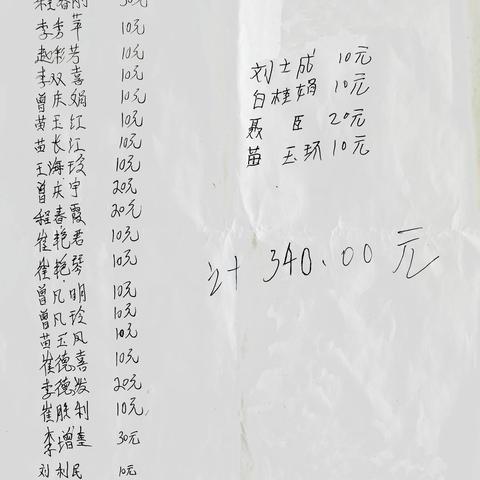 李秀萍 10元
赵彩芳 10元
李双喜 10元
曾庆娟 10元
苗玉红 10元
苗长江 10元
王海玲 10元
曾庆宇 20元
程春霞 20元
崔艳君 10元
崔艳琴 10元
曾凡明 10元
曾凡玲 10元
苗玉凤 10元
崔德喜 10元
李德发 20元
崔胜利 10元
李增奎 30元
刘利民 10元
刘士成 10元
白桂娟 10元
聂臣 20元
苗玉环 10元
计 340.00元